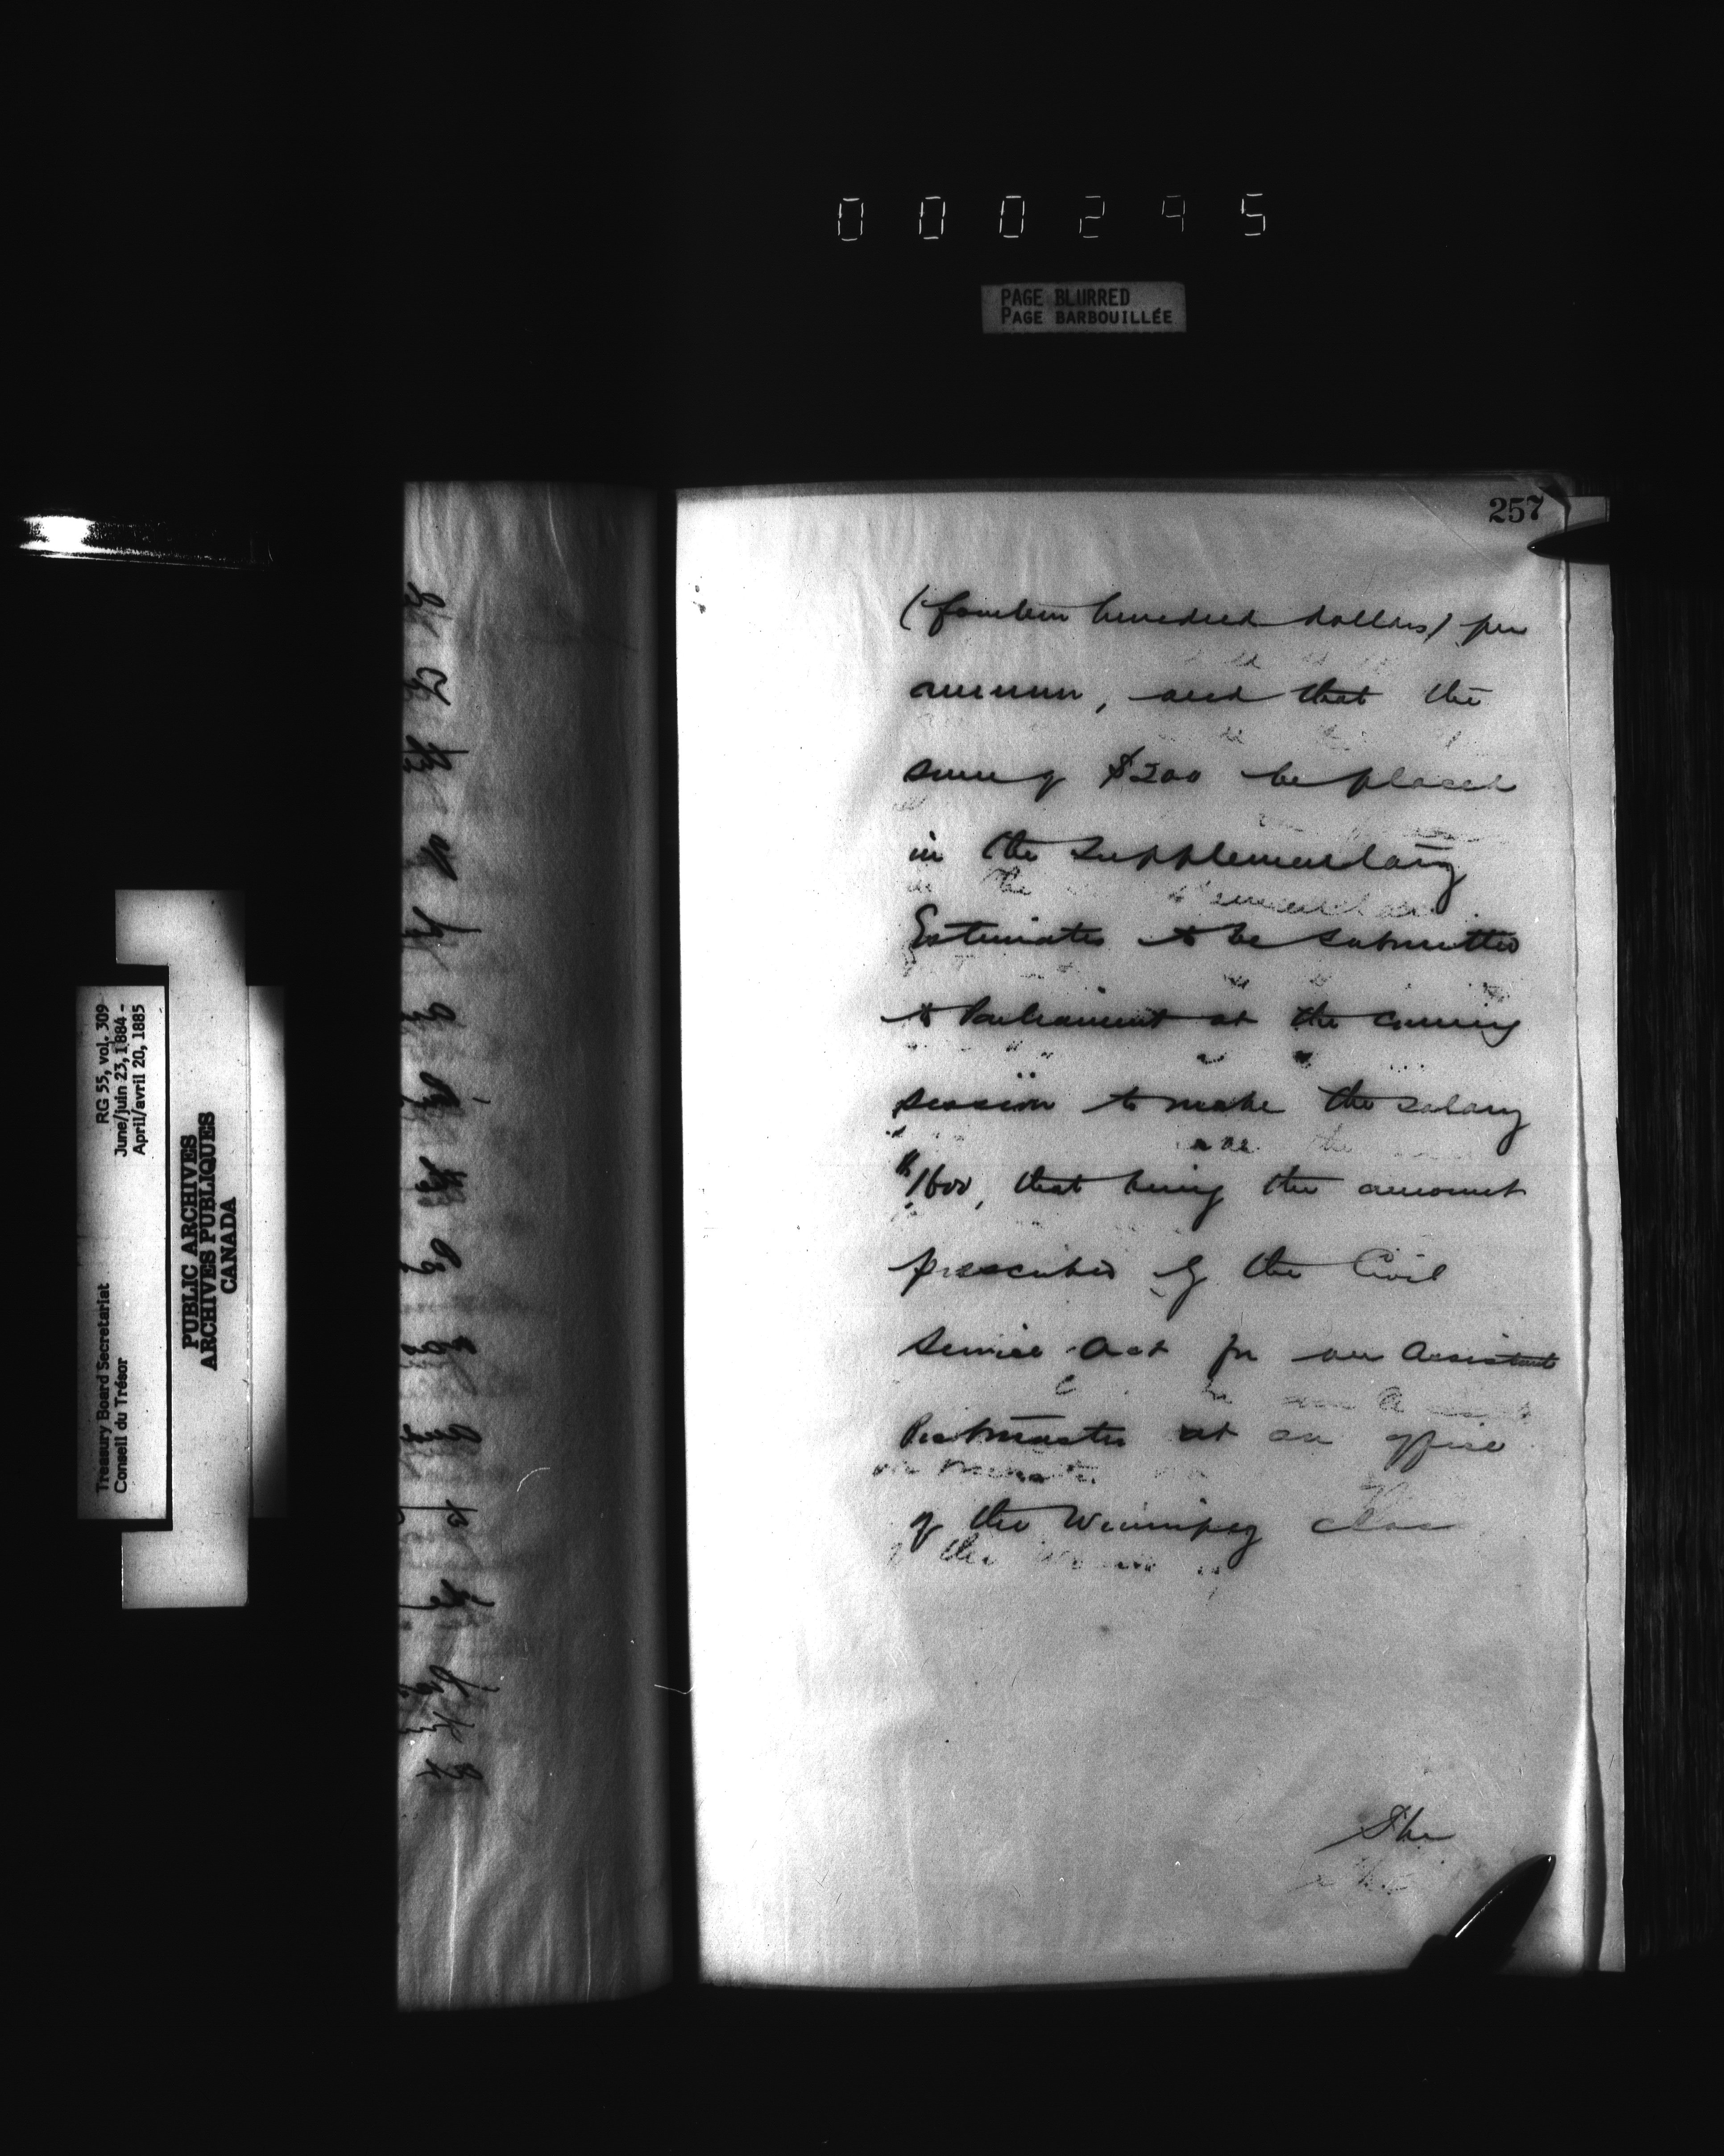 000295
PAGE BLURRED
PAGE BARBOUILLÉE
257
(fourteen hundred dollars) per
annum, and that the
sum of $200 be placed
in the Supplementary
Estimates to be submitted
to Parliament at the coming
session to make the salary
$1600, that being the amount
prescribed by the Civil
Service Act for an Assistant
Postmaster at an office
of the Winnipeg class
The
RG 55, vol. 309
June/juin 23, 1884 -
April/avril 20, 1885
Treasury Board Secretariat
Conseil du Trésor
PUBLIC ARCHIVES
ARCHIVES PUBLIQUES
CANADA